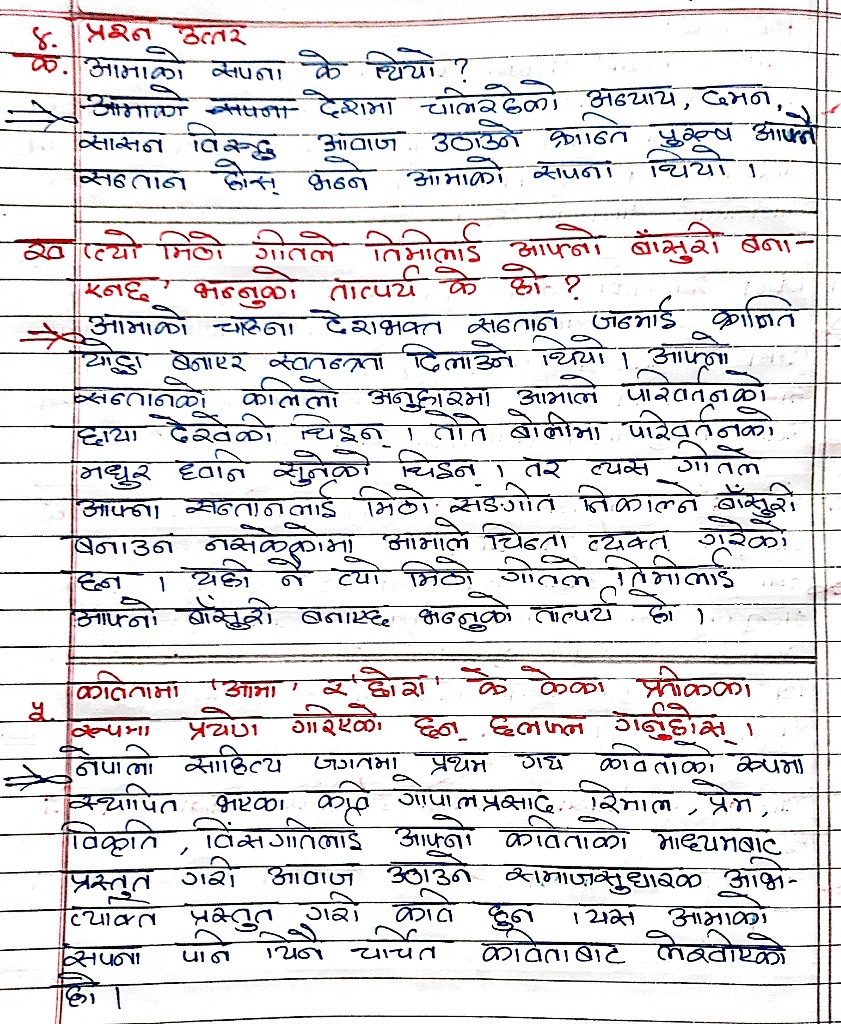 ४. प्रश्न उत्तर
क. आमाको सपना के थियो ?
आमाको सपना देशमा चलिरहेको अन्याय, दमन,
सासन विरुद्ध आवाज उठाउने क्रान्ति पुरुष आफ्नै
सन्तान होस् भन्ने आमाको सपना थियो ।
ख 'त्यो मिठो गीतले तिमीलाई आफ्नो बाँसुरी बना-
एनछ' भन्नुको तात्पर्य के हो ?
आमाको चाहना देशभक्त सन्तान जन्माई क्रान्ति
योद्धा बनाएर स्वतन्त्रता दिलाउने थियो । आफ्नो
सन्तानको कलिलो अनुहारमा आमाले परिवर्तनको
छाया देखेकी थिइन् । तोते बोलीमा परिवर्तनको
मधुर ध्वनि सुनेकी थिइन् । तर त्यस गीतले
आफ्ना सन्तानलाई मिठो सङगीत निकाल्ने बाँसुरी
बनाउन नसकेकोमा आमाले चिन्ता व्यक्त गरेकी
छन । यही नै त्यो मिठो गीतले तिमीलाई
आफ्नो बाँसुरी बनाएछ भन्नुको तात्पर्य हो ।
कवितामा 'आमा' र 'छोरा' के केका प्रतीकका
५. रूपमा प्रयोग गरिएको छन् छलफल गर्नुहोस् ।
नेपाली साहित्य जगतमा प्रथम गद्य कविताको रूपमा
स्थापित भएका कवि गोपालप्रसाद रिमाल, प्रेम,
विकृति, विसंगतिलाई आफ्नो कविताको माध्यमबाट
प्रस्तुत गरी आवाज उठाउने समाजसुधारक अभि-
व्यक्ति प्रस्तुत गरी कवि हुन । यस आमाको
सपना पनि यिनै चर्चित कविताबाट लेखीएको
हो ।